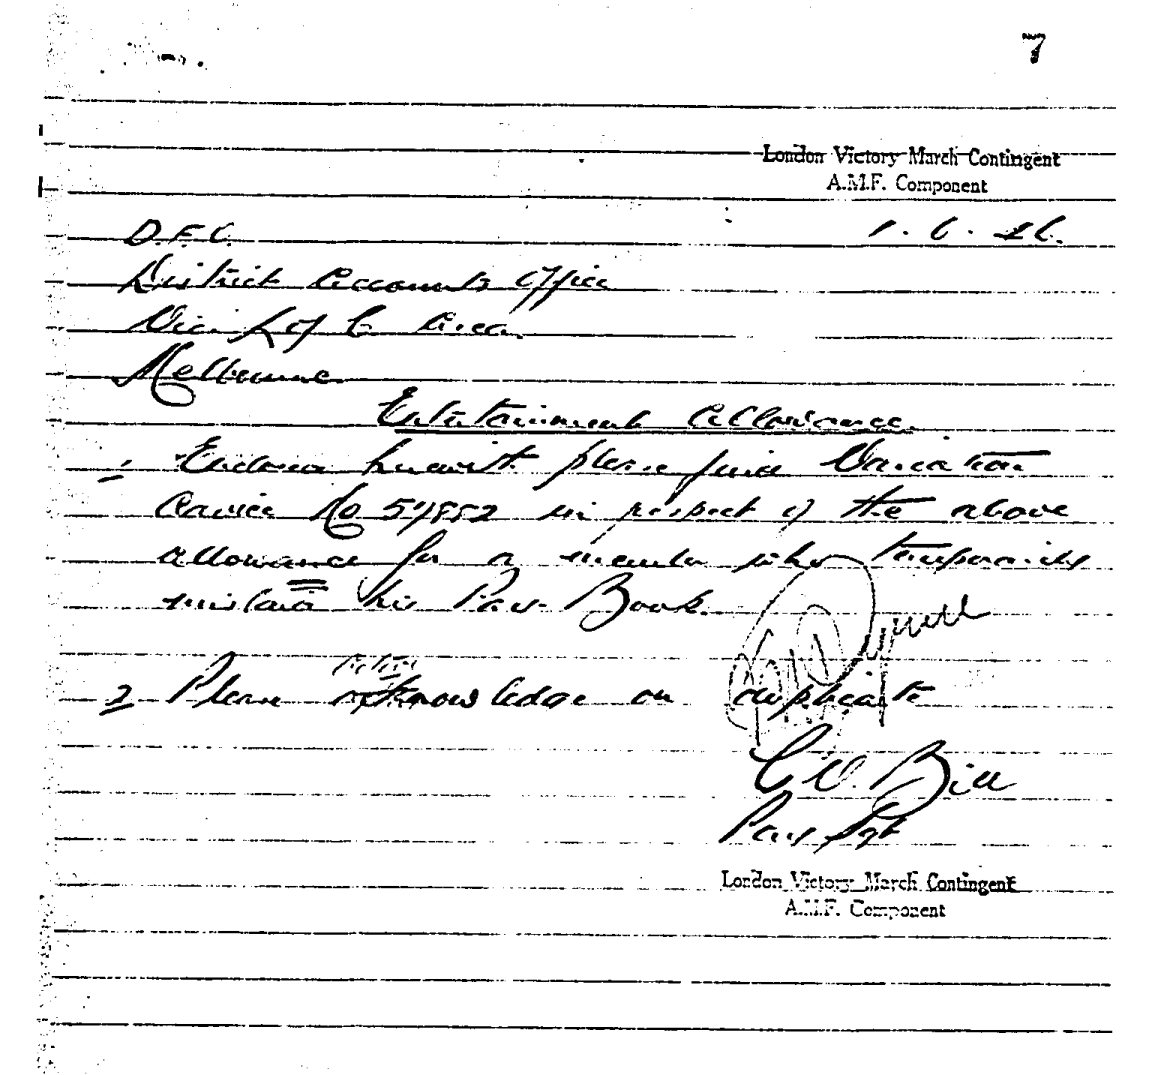 7
London Victory March Contingent
A.M.F. Component
1.6.46.
D.F.O.
District Accounts Office
Vic. L of C Area.
Melbourne
Entertainment Allowance.
1 Enclosed herewith please find Variation
Advice No 57882 in respect of the above
allowance for a member who temporarily
mislaid his Pay Book.
2 Please acknowledge on duplicate
C V. Bill
Pay Sgt
London Victory March Contingent
A.M.F. Component